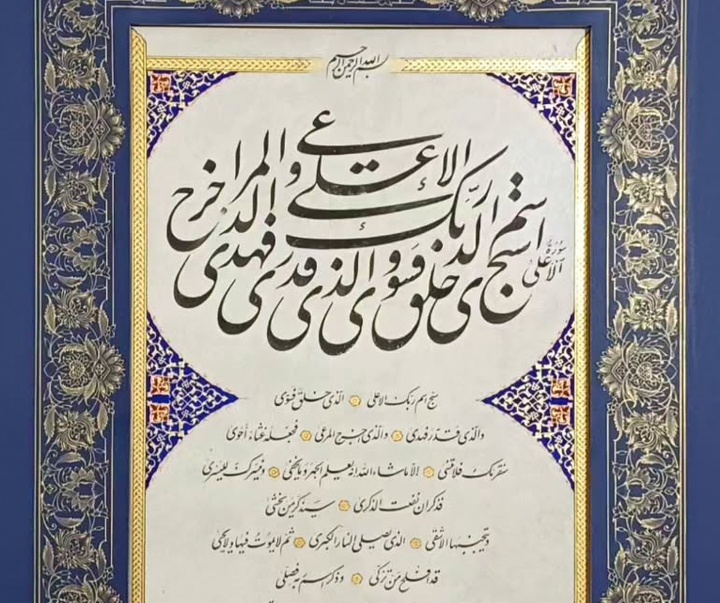 بسم الله الرحمن الرحیم
سورة الاعلى
سبح اسم ربک الاعلى الذى خلق فسوى والذى قدر فهدى والذى اخرج المرعى
سبح اسم ربک الاعلى الذى خلق فسوى
والذى قدر فهدى والذى اخرج المرعى فجعله غثاء أحوى
سنقرئک فلا تنسى الا ماشاء الله انه یعلم الجهر و ما یخفى و نیسرک للیسرى
فذکر ان نفعت الذکرى سیذکر من یخشى
ویتجنبها الاشقى الذى یصلى النار الکبرى ثم لا یموت فیها ولا یحیى
قد افلح من تزکى وذکر اسم ربه فصلى